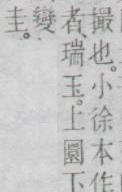 撮也。小徐本作
者、瑞玉。上圜下
變
圭。